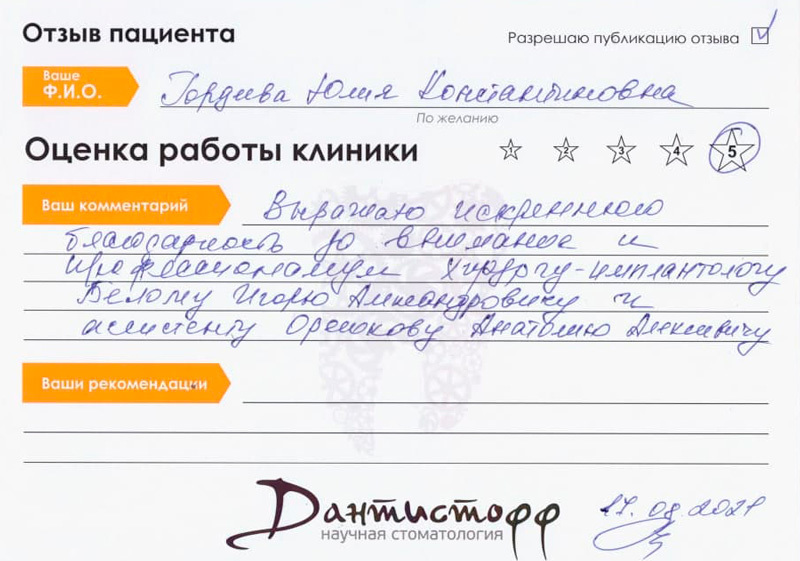 Отзыв пациента
Разрешаю публикацию отзыва
Ваше
Ф.И.О.
Гордеева Юлия Константиновна
По желанию
Оценка работы клиники
1 2 3 4 5
Ваш комментарий
Выражаю искреннюю
благодарность за внимание и
профессионализм хирургу-имплантологу
Белому Игорю Александровичу и
ассистенту Орешкову Анатолию Алексеевичу
Ваши рекомендации
Дантистофф
научная стоматология
17.08.2021